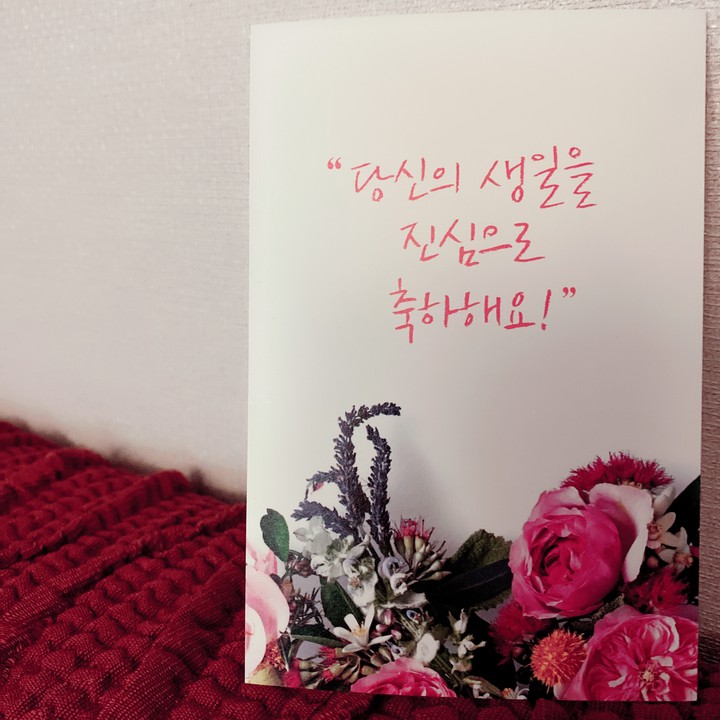 “당신의 생일을
진심으로
축하해요!”